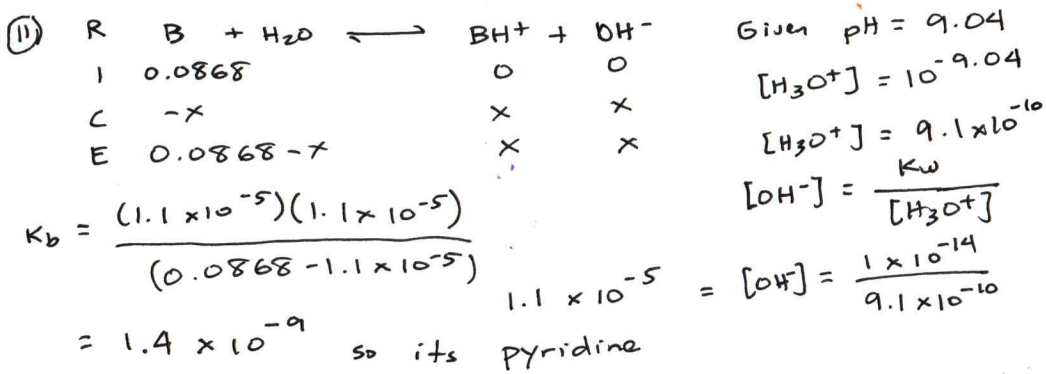 (11) R B + H2O ⇌ BH+ + OH-
I 0.0868 0 0
C -x x x
E 0.0868-x x x
Kb = (1.1 x10^-5)(1.1x 10^-5) / (0.0868-1.1x10^-5)
= 1.4 x 10^-9 so its pyridine
Given pH = 9.04
[H3O+] = 10^-9.04
[H3O+] = 9.1x10^-10
[OH-] = Kw / [H3O+]
1.1 x 10^-5 = [OH-] = 1x10^-14 / 9.1x10^-10